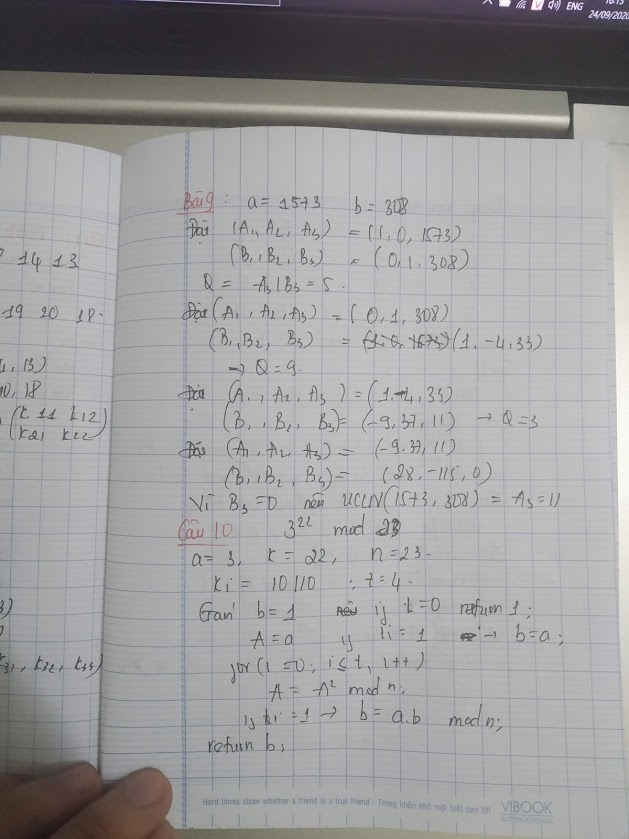 16:15
ENG
24/09/2020
14 13
19 20 18.
, 13)
10, 18
(k11 k12
(k21 k22
k31, k32, k33)
Bài 9: a = 1573 b = 308
Đặt (A1, A2, A3) = (1, 0, 1573)
(B1, B2, B3) = (0, 1, 308)
Q = A3/B3 = 5.
Đặt (A1, A2, A3) = (0, 1, 308)
(B1, B2, B3) = (1, 0, 1573) (1, -4, 33)
→ Q = 9.
Đặt (A1, A2, A3) = (1, -4, 33)
(B1, B2, B3) = (-9, 37, 11) → Q = 3
Đặt (A1, A2, A3) = (-9, 37, 11)
(B1, B2, B3) = (28, -115, 0)
Vì B3 = 0 nên UCLN(1573, 308) = A3 = 11
Câu 10 3^22 mod 23
a = 3, K = 22, n = 23.
Ki = 10110 ; t = 4.
Gán b = 1 if k = 0 return 1;
A = a if ki = 1 → b = a;
for (i = 0; i ≤ t, i++)
A = A² mod n;
if ki = 1 → b = a.b mod n;
return b;
Hard times show whether a friend is a true friend : Trong khốn khó mới biết bạn tốt
VIBOOK
INTERNATIONAL